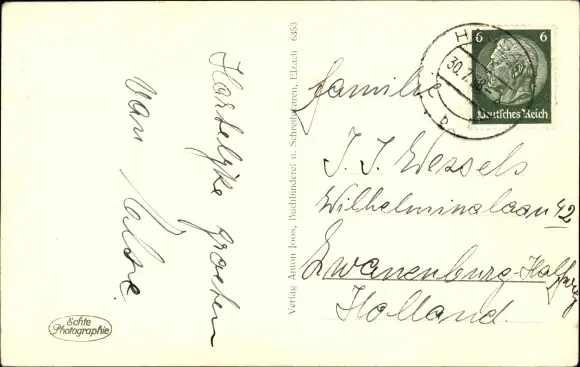 Hartelijke groeten
van
Echte
Photographie
Verlag Anton Joos, Buchbinderei u. Schreibwaren, Elzach 6353
6 6
Deutsches Reich
30.7.
familie
J. J. Wessels
Wilhelminalaan 42
Zwanenburg-Halfweg
Holland.